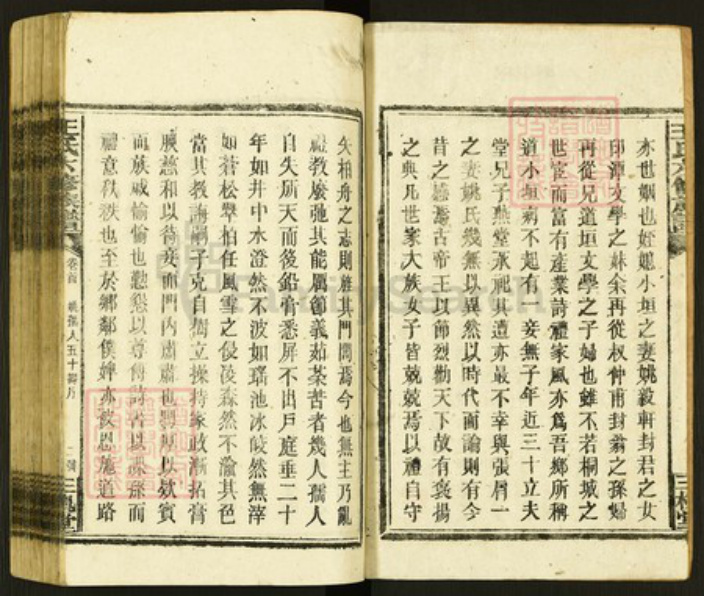 亦世姻也姪媳小垣之妻姚毅軒封君之女
印潭文學之妹余再從叔仲甫封翁之孫婦
再從兄道垣文學之子婦也雖不若桐城之
世宦而富有產業詩禮家風亦為吾鄉所稱
道小垣病不起有一妾無子年近三十立夫
堂兄子燕堂承祀其遭亦最不幸與張屑一
之妻姚氏幾無以異然以時代而論則有今
昔之感焉古帝王以節烈勸天下故有褒揚
之典凡世家大族女子皆兢兢焉以禮自守
矢柏舟之志則旌其門閭焉今也無主乃亂
禮教廢弛其能厲節義茹荼苦者幾人孺人
自失所天而後鉛膏悉屏不出戶庭垂二十
年如井中水澄然不波如璿池冰皎然無滓
如蒼松翠柏任風雪之侵凌森然不渝其色
當其教誨嗣子克自樹立操持家政漸拓膏
腴慈和以待妾而門內肅肅也
而族戚愉愉也懇懇以尊傅詩書以課孫而
禮意秩秩也至於鄉鄰僕婢亦被恩施道路
王氏六修族譜
卷首
姚孺人五十壽序
三槐堂
FamilySearch